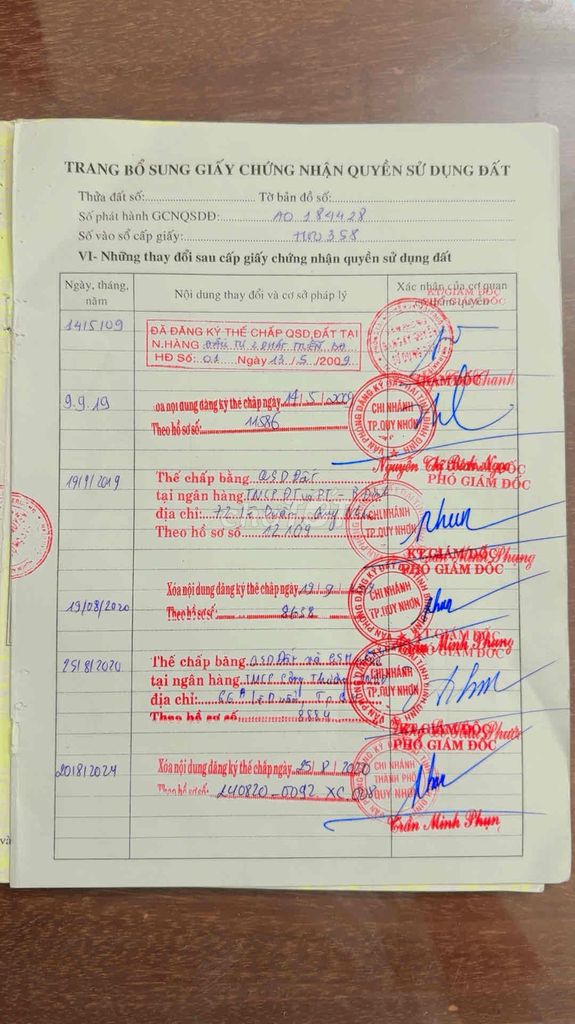 TRANG BỔ SUNG GIẤY CHỨNG NHẬN QUYỀN SỬ DỤNG ĐẤT
Thửa đất số: Tờ bản đồ số:
Số phát hành GCNQSDĐ: AO 184428
Số vào sổ cấp giấy: 358
VI- Những thay đổi sau cấp giấy chứng nhận quyền sử dụng đất
Ngày, tháng, năm
Nội dung thay đổi và cơ sở pháp lý
Xác nhận của cơ quan có thẩm quyền
KT.GIÁM ĐỐC
PHÓ GIÁM ĐỐC
14/5/09
ĐÃ ĐĂNG KÝ THẾ CHẤP QSD,ĐẤT TẠI
N.HÀNG ĐẦU TƯ & PHÁT TRIỂN
HĐ Số: 01 Ngày 13/5/2009
9.9.19
Xoá nội dung đăng ký thế chấp ngày 14/5/2009
Theo hồ sơ số: 11586
CHI NHÁNH
TP.QUY NHƠN
Nguyễn Thị Bích Ngọc
PHÓ GIÁM ĐỐC
19/9/2019
Thế chấp bằng QSD Đất
tại ngân hàng TMCP ĐT và PT - B Định
địa chỉ: 72 Lê Duẩn, Quy Nhơn
Theo hồ sơ số 12109
CHI NHÁNH
TP.QUY NHƠN
KT.GIÁM ĐỐC
PHÓ GIÁM ĐỐC
19/08/2020
Xóa nội dung đăng ký thế chấp ngày 19/9/
Theo hồ sơ số: 8658
CHI NHÁNH
TP.QUY NHƠN
Trần Minh Phụng
PHÓ GIÁM ĐỐC
25/8/2020
Thế chấp bằng QSD Đất và
tại ngân hàng TMCP Công Thương
địa chỉ: 66A Lê Duẩn, Tp.
Theo hồ sơ số 8884
CHI NHÁNH
TP.QUY NHƠN
KT.GIÁM ĐỐC
PHÓ GIÁM ĐỐC
20/8/2024
Xóa nội dung đăng ký thế chấp ngày 25/8/2020
Theo hồ sơ số: 240820-0092 XC
CHI NHÁNH
THÀNH PHỐ
QUY NHƠN
Trần Minh Phụng